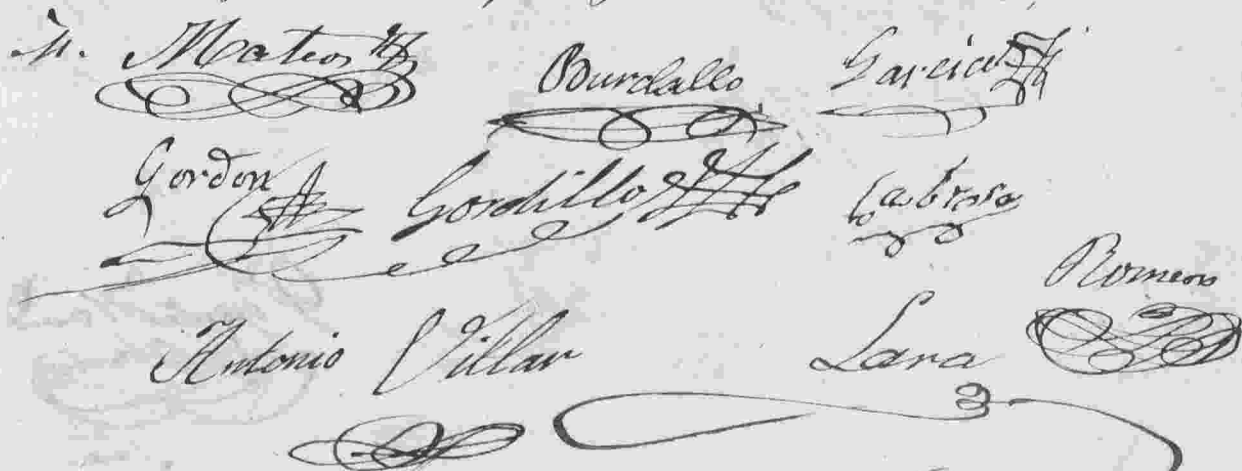 M. Mateos Burdallo Garcia
Gordon Gordillo Cabrera
Romero
Antonio Villar Lara